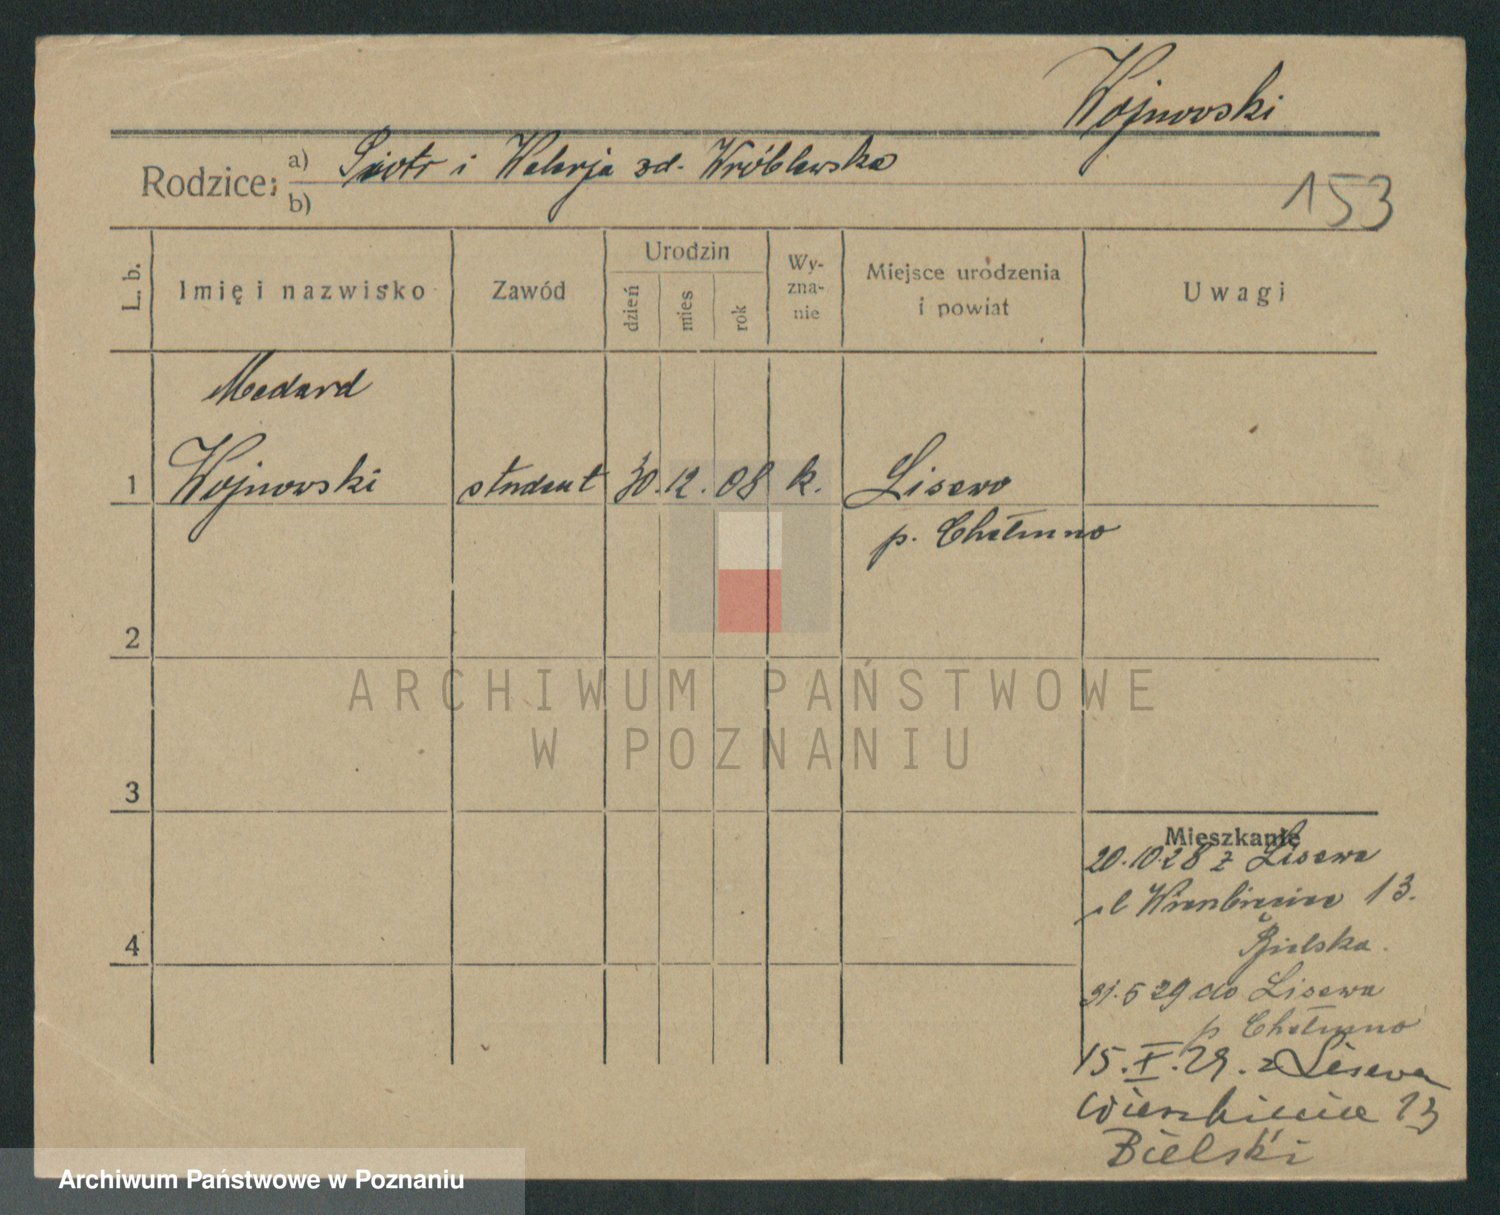 Wojnowski
Rodzice: a) Piotr i Walerja zd. Wróblewska
b)
153
L. b.
Imię i nazwisko
Zawód
Urodzin
dzień
mies
rok
Wy-
zna-
nie
Miejsce urodzenia
i powiat
Uwagi
Medard
1 Wojnowski student 30. 12. 08 k. Lisewo
p. Chełmno
2
3
4
Mieszkanie
20.10.28 z Lisewa
ul Wierzbięcice 13.
Bielska.
31.5 29 do Lisewa
p Chełmno
15.X.29. z Lisewa
Wierzbięcice 13
Bielski
ARCHIWUM PAŃSTWOWE
W POZNANIU
Archiwum Państwowe w Poznaniu